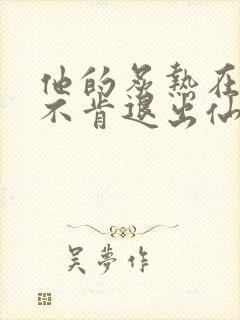 他的炙热在
不肯退出仙
吴梦作